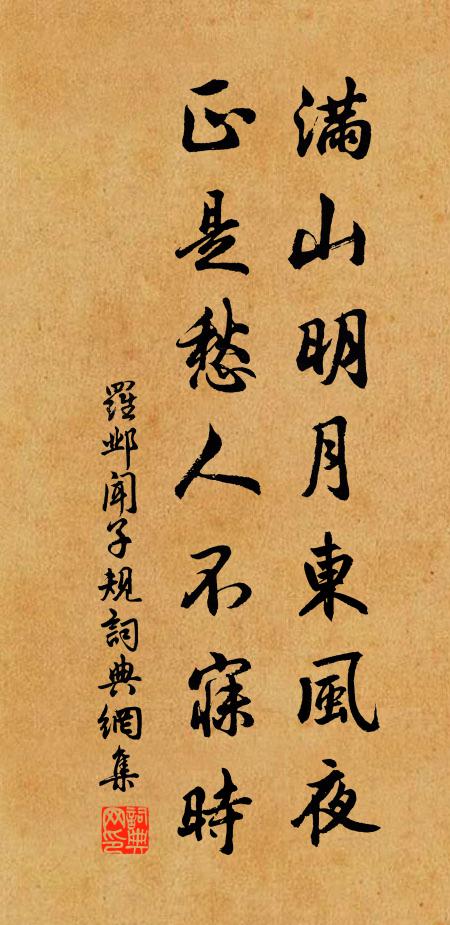 滿山明月東風夜
正是愁人不寐時
羅邺闻子規詞典網集
詞典網印